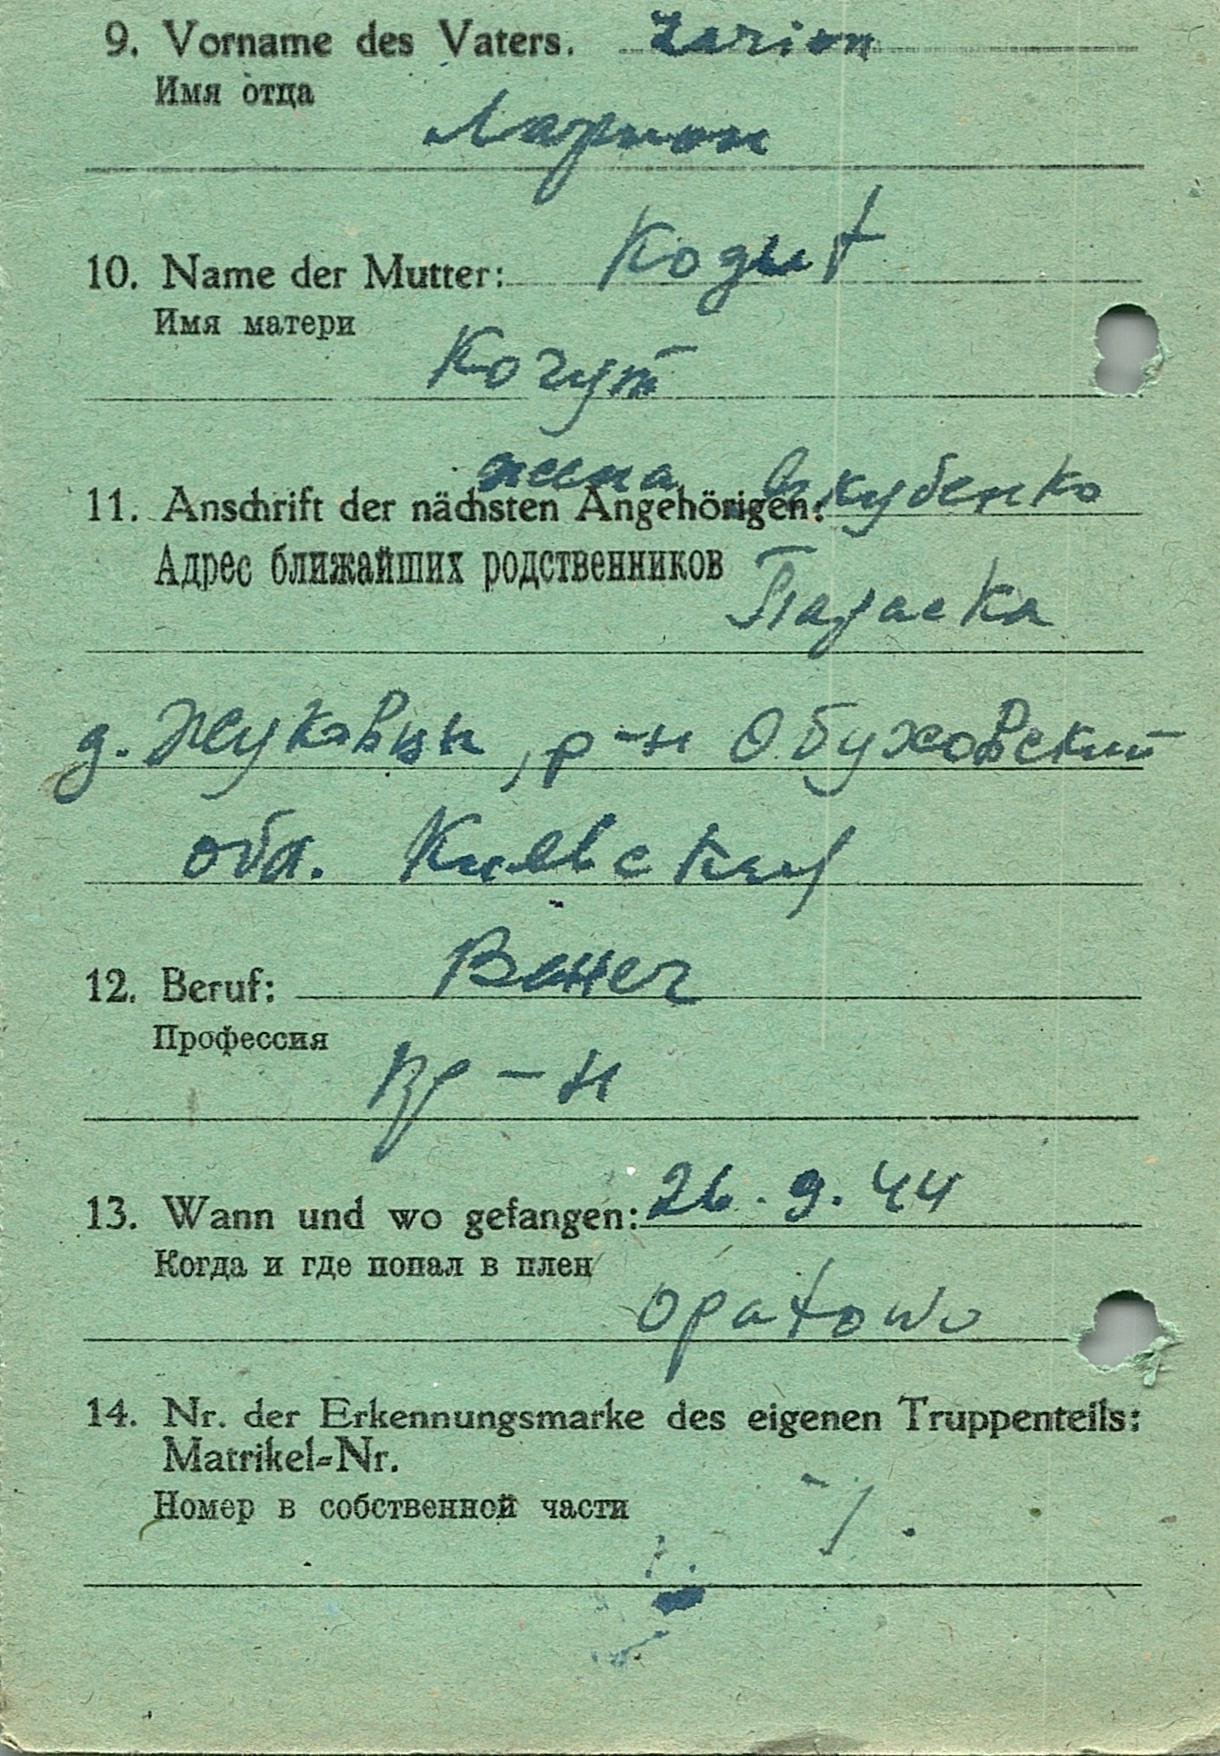 9. Vorname des Vaters. Larion
Имя отца
Ларион
10. Name der Mutter: Kogut
Имя матери
Когут
жена Якубенко
11. Anschrift der nächsten Angehörigen:
Адрес ближайших родственников
Параска
д. Жуковцы, р-н Обуховский
обл. Киевская
12. Beruf: Bauer
Профессия
кр-н
13. Wann und wo gefangen: 26. 9. 44
Когда и где попал в плен
Opatowo
14. Nr. der Erkennungsmarke des eigenen Truppenteils:
Matrikel-Nr.
Номер в собственной части